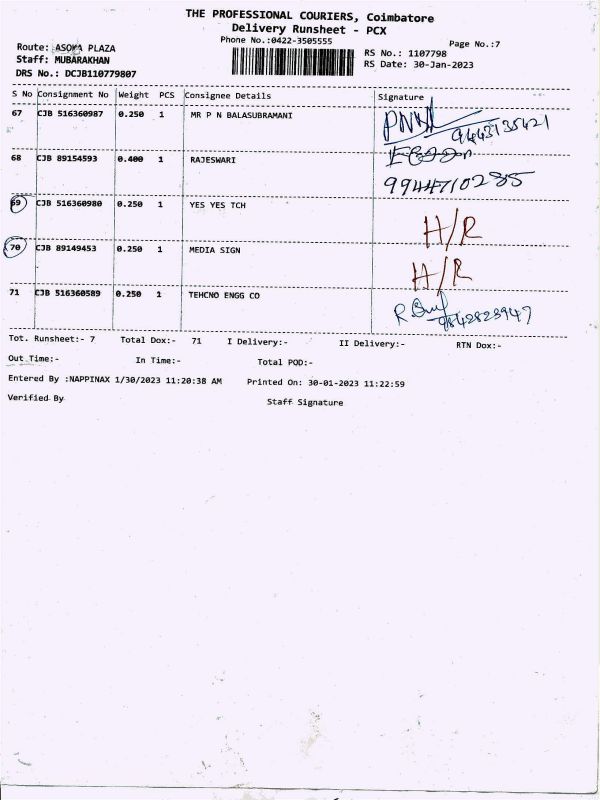 THE PROFESSIONAL COURIERS, Coimbatore
Delivery Runsheet - PCX
Phone No.:0422-3505555
Page No.:7
Route: ASOKA PLAZA
RS No.: 1107798
Staff: MUBARAKHAN
RS Date: 30-Jan-2023
DRS No.: DCJB110779807
S No Consignment No Weight PCS Consignee Details Signature
67 CJB 516360987 0.250 1 MR P N BALASUBRAMANI
9443135421
68 CJB 89154593 0.400 1 RAJESWARI
9944710235
69 CJB 516360980 0.250 1 YES YES TCH H/R
70 CJB 89149453 0.250 1 MEDIA SIGN H/R
71 CJB 516360589 0.250 1 TEHCNO ENGG CO
9842823947
Tot. Runsheet:- 7 Total Dox:- 71 I Delivery:- II Delivery:- RTN Dox:-
Out Time:- In Time:- Total POD:-
Entered By :NAPPINAX 1/30/2023 11:20:38 AM Printed On: 30-01-2023 11:22:59
Verified By Staff Signature